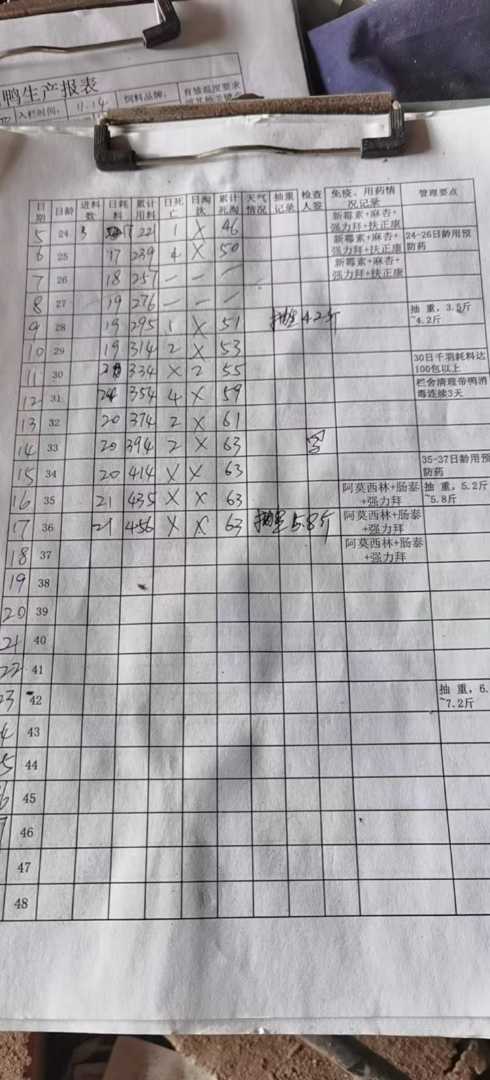 鸭生产报表
入栏时间： 11.14 饲料品牌：
日期 日龄 进料数 日耗料 累计用料 日死亡 日淘汰 累计死淘 天气情况 抽重记录 检查人签 免疫、用药情况记录 管理要点
5 24 3 17 221 1 X 46 新霉素+麻杏+强力拜+扶正康
6 25 17 239 4 X 50 新霉素+麻杏+强力拜+扶正康 24-26日龄用预防药
7 26 18 257 — — — 新霉素+麻杏+强力拜+扶正康
8 27 19 276 — — —
9 28 19 295 1 X 51 4.2斤 抽重，3.5斤~4.2斤
10 29 19 314 2 X 53
11 30 334 X 2 55 30日千羽耗料达100包以上
12 31 354 4 X 59 栏舍清理带鸭消毒连续3天
13 32 20 374 2 X 61
14 33 20 394 2 X 63
15 34 20 414 X X 63 35-37日龄用预防药
16 35 21 435 X X 63 阿莫西林+肠泰+强力拜 抽重，5.2斤~5.8斤
17 36 21 456 X X 63 5.8斤 阿莫西林+肠泰+强力拜
18 37 阿莫西林+肠泰+强力拜
19 38
20 39
21 40
22 41
23 42 抽重，6.~7.2斤
43
44
45
46
47
48